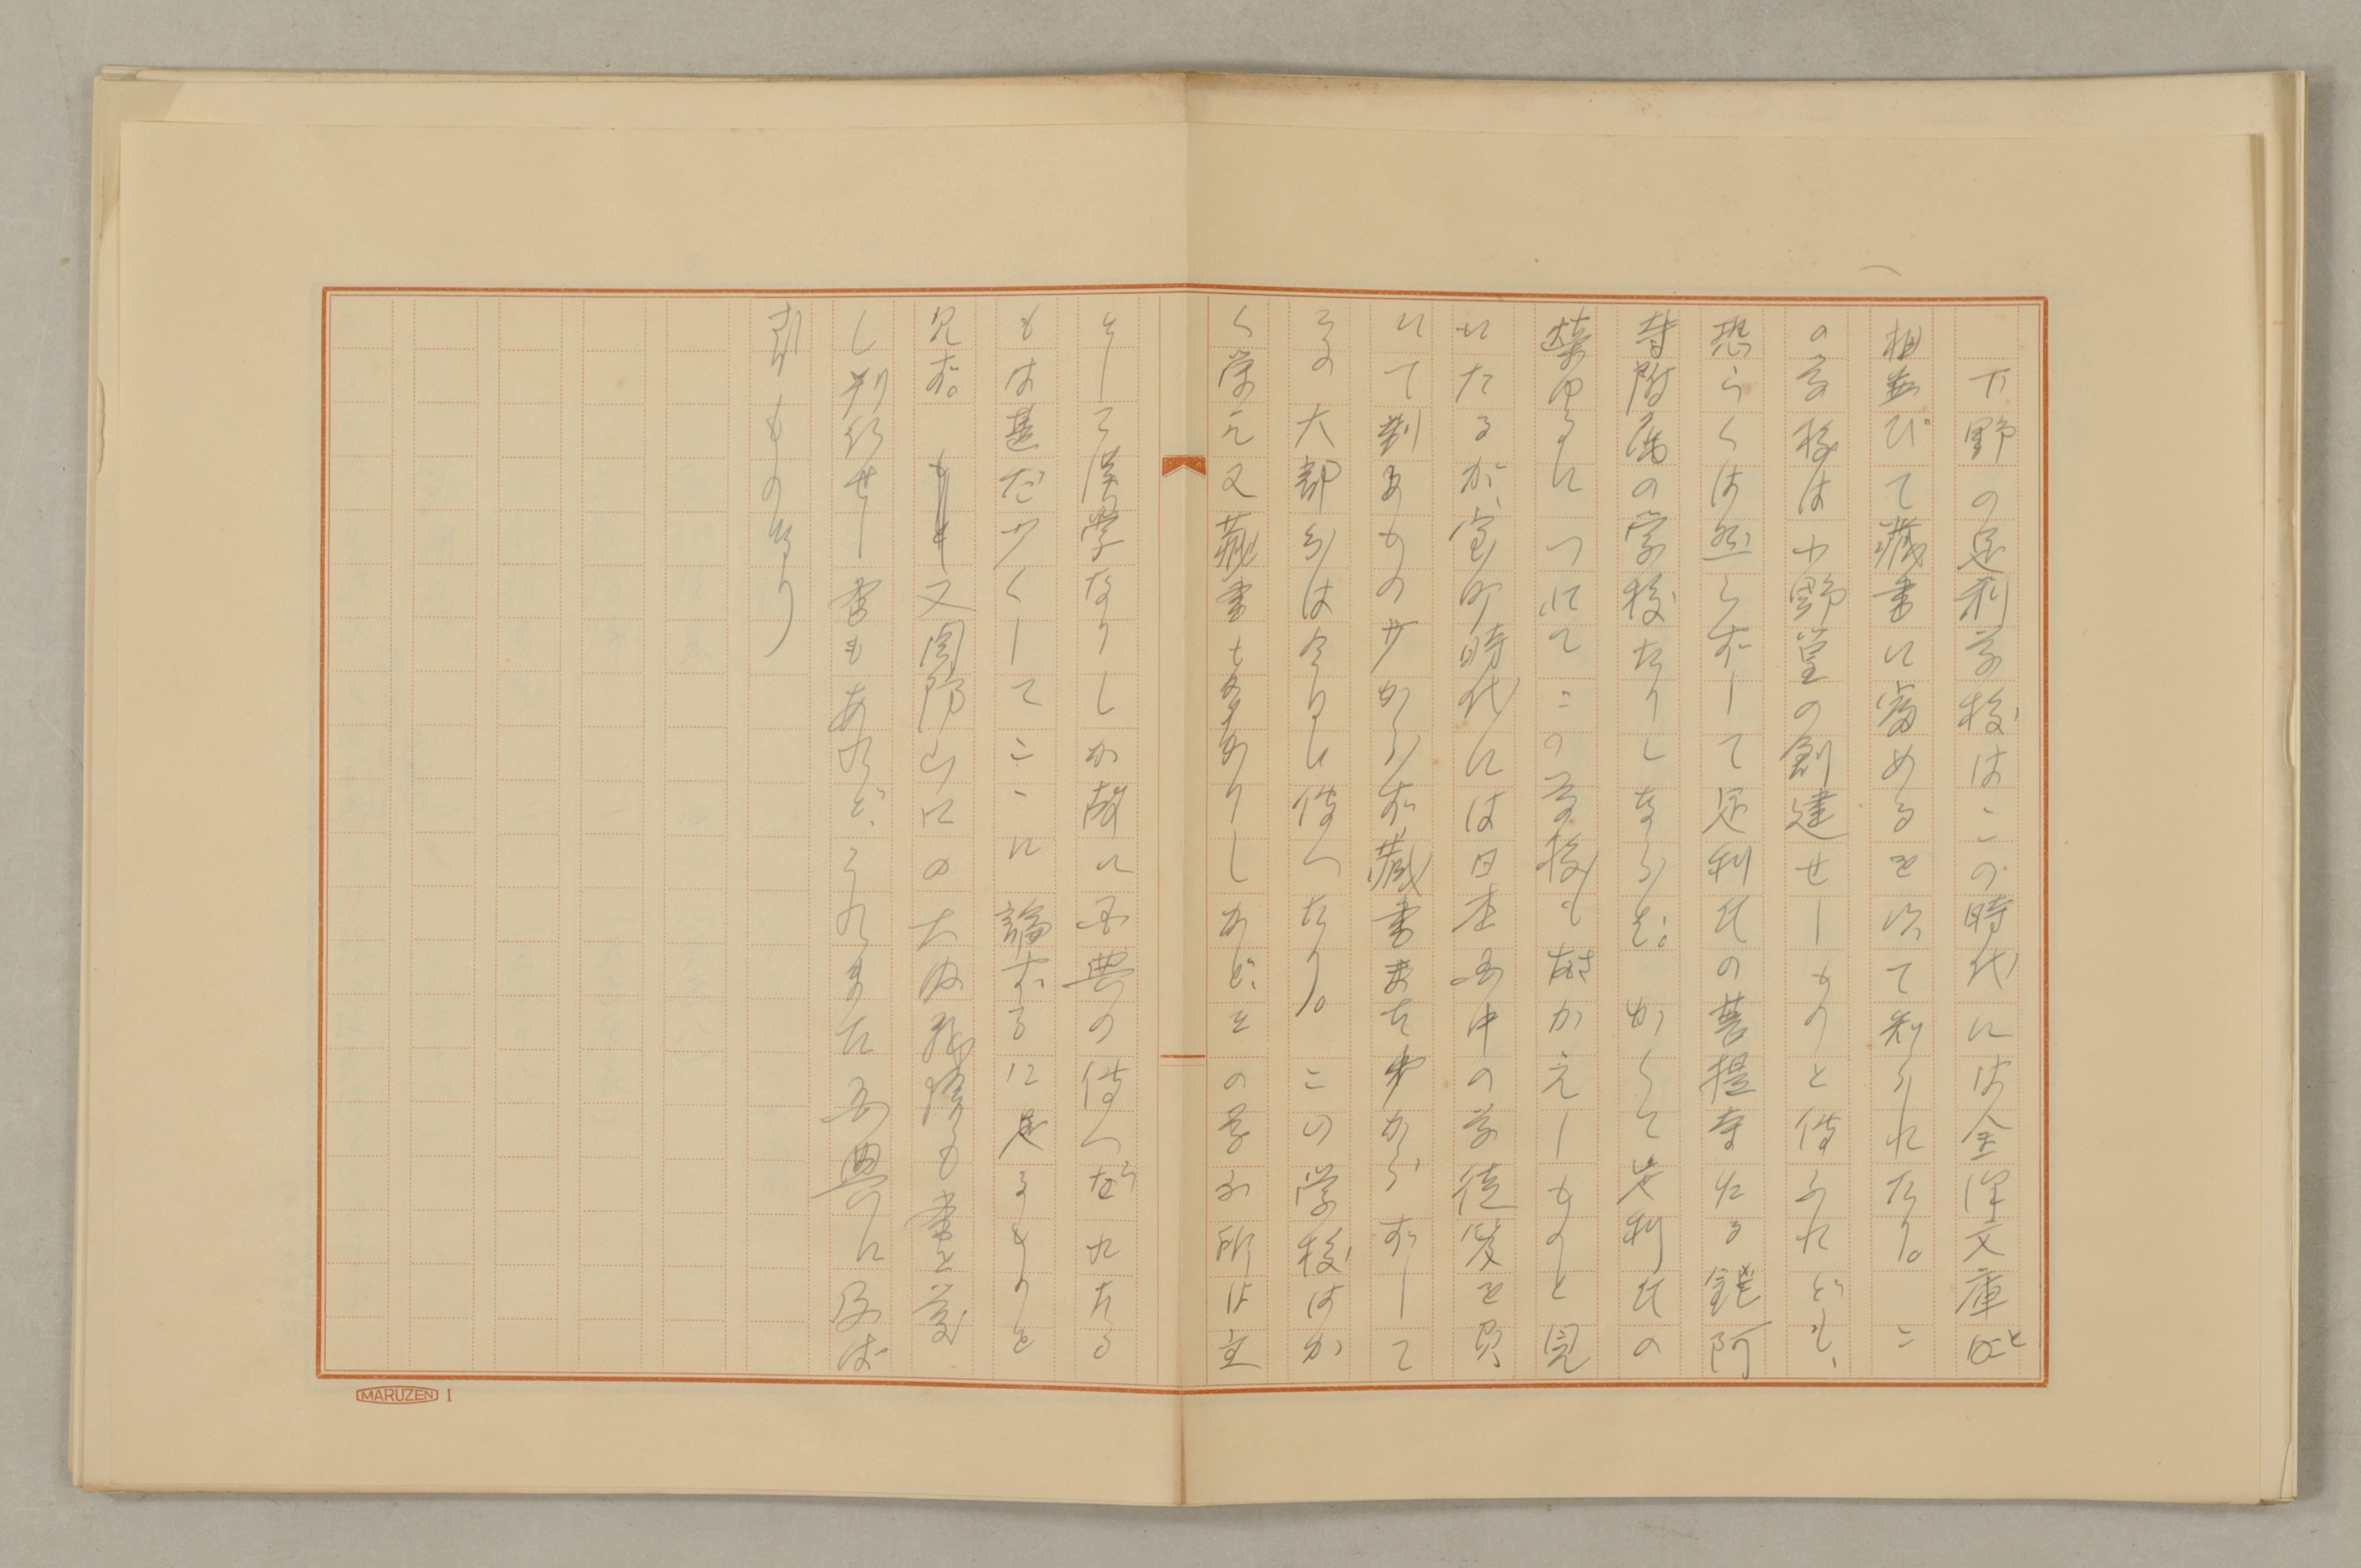 下野の足利学校はこの時代には金澤文庫と
相並びて蔵書に富めるを以て知られたり。こ
の学校は小野篁の創建せしものと傳ふれども、
恐らくは然らずして足利氏の菩提寺たる鑁阿
寺附属の学校たりしならむ。かくて足利氏の
榮ゆるにつれてこの学校もさかえしものと見
れたるが、室町時代には日本国中の学徒笈を負
いて到るもの少からず蔵書また少からずして
その大部分は今日に傳へたり。この学校はか
く栄え又蔵書も多かりしかど、その学ぶ所は主
として漢学なりしが故に国典の傳へられたる
もは甚だ少くしてここに論ずるに足るものを
見ず。又周防山口の大内義隆も書を蔵
し刊行せし書もあれど、これまた国典に及ば
ざりしものなり
MARUZEN 1